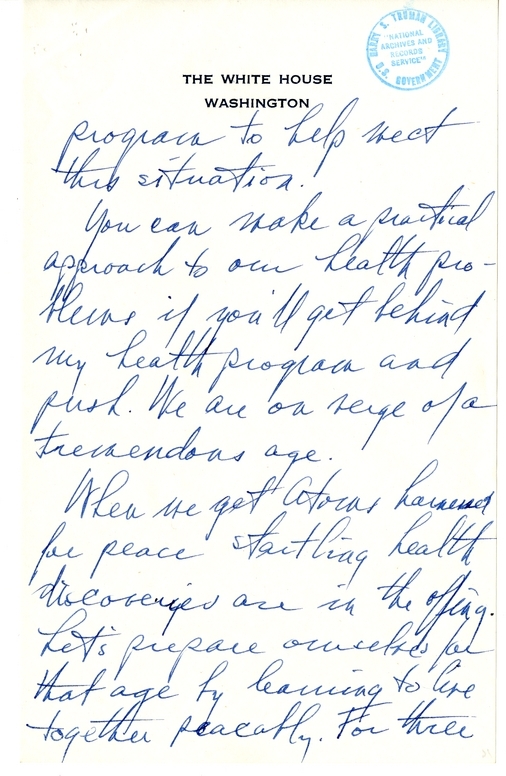 HARRY S. TRUMAN LIBRARY
"NATIONAL
ARCHIVES AND
RECORDS
SERVICE"
U.S. GOVERNMENT
THE WHITE HOUSE
WASHINGTON
program to help meet
this situation.
You can make a practical
approach to our health pro-
blems if you'll get behind
my health program and
push. We are on verge of a
tremendous age.
When we get Atoms harnessed
for peace startling health
discoveries are in the offing.
Let's prepare ourselves for
that age by learning to live
together peaceably. For three